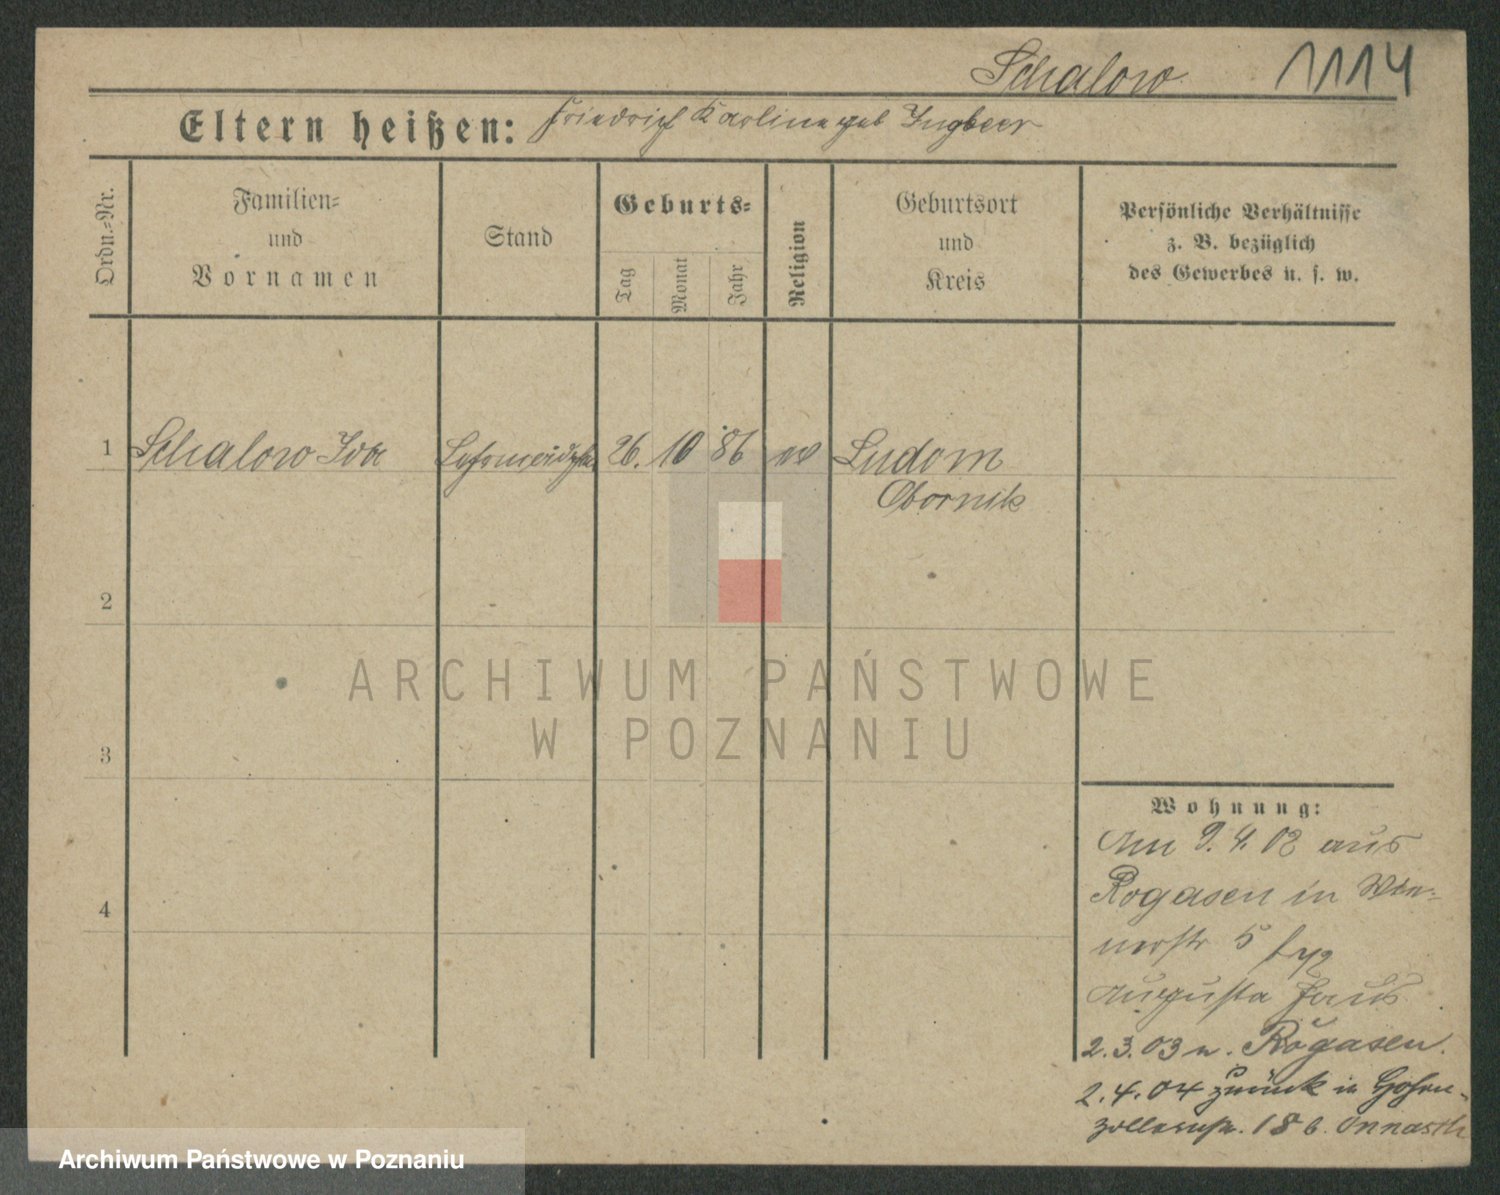 Schalow 1114
Eltern heißen: Friedrich Karline geb Ingbeer
Ordn.-Nr.
Familien-
und
Vornamen
Stand
Geburts-
Tag
Monat
Jahr
Religion
Geburtsort
und
Kreis
Persönliche Verhältnisse
z. B. bezüglich
des Gewerbes u. s. w.
1 Schalow Ida 26. 10 86 ev Ludom
Obornik
2
3
4
ARCHIWUM PAŃSTWOWE
W POZNANIU
Wohnung:
Am 9. 4. 02 aus
Rogasen in
5
Augusta
2. 3. 03 n. Rogasen.
2. 4. 04 zurück in Hohen-
zollernstr. 18 b.
Archiwum Państwowe w Poznaniu